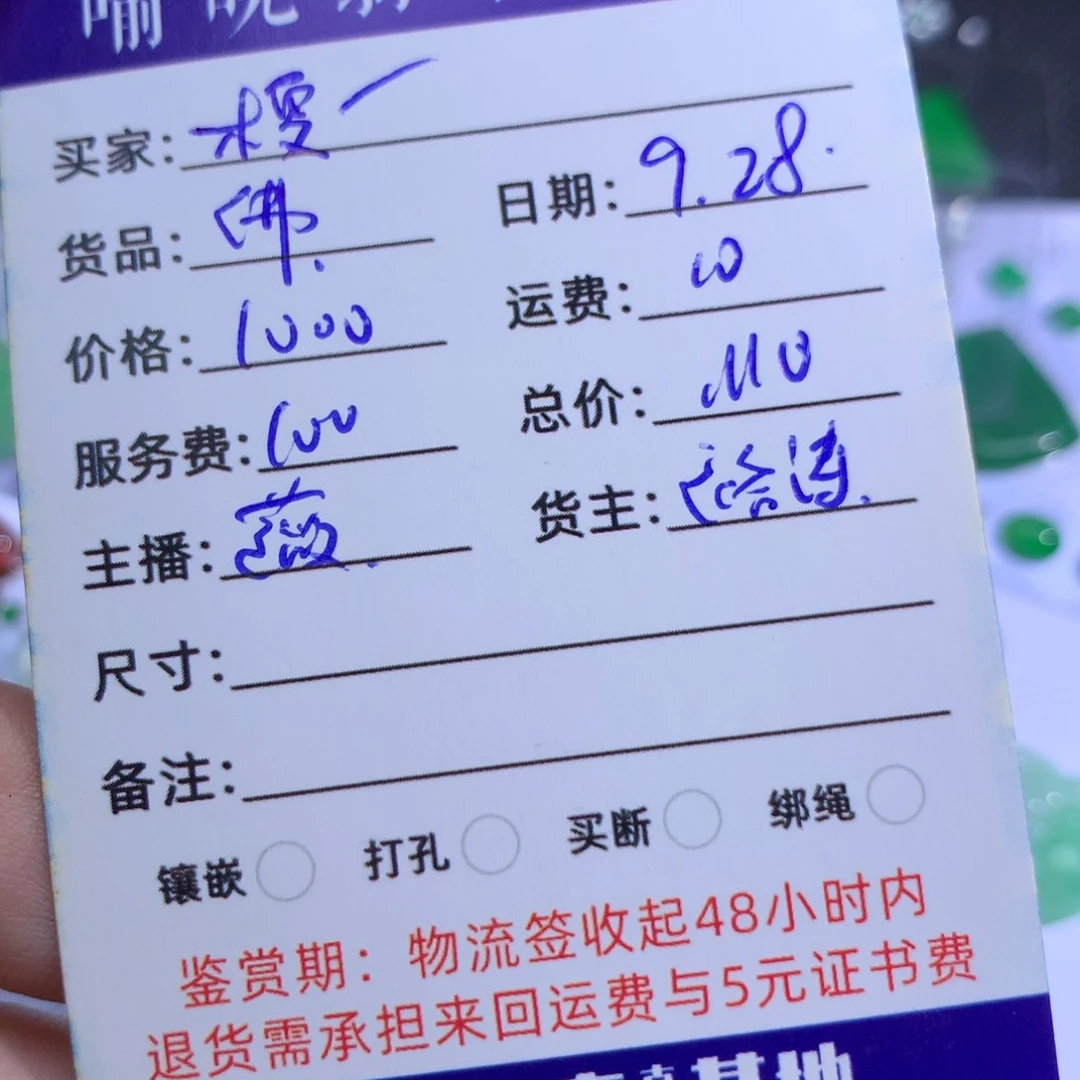 喻晚翡
买家: 榎一
货品: 佛.
日期: 9.28.
价格: 1000
运费: 10
服务费: 100
总价: 1110
主播: 薇.
货主:
尺寸:
备注:
镶嵌 打孔 买断 绑绳
鉴赏期：物流签收起48小时内
退货需承担来回运费与5元证书费
基地